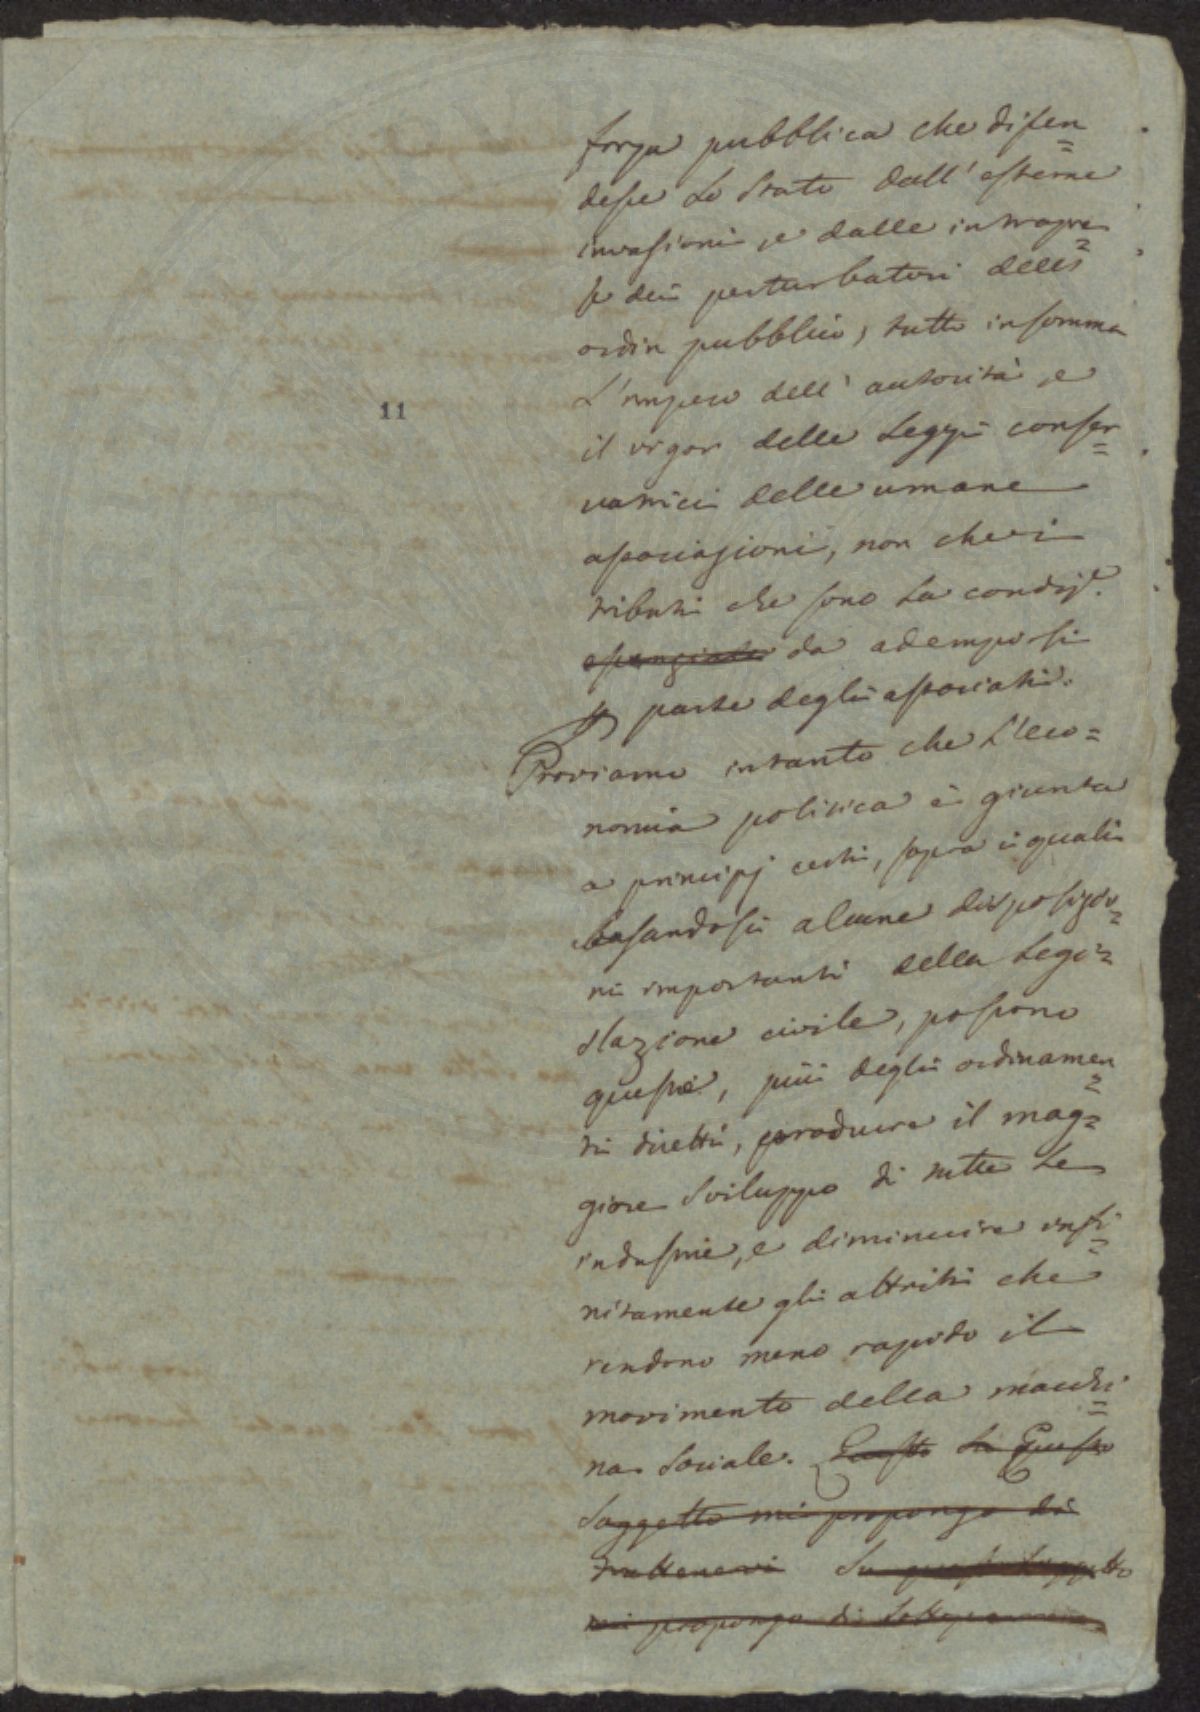 forza pubblica che difen=
desse lo Stato dall'esterne
invasioni, e dalle intrapre=
se dei perturbatori dell'
ordin pubblico, tutto insomma
11
L'impero dell'autorità, e
il vigor delle Leggi conser=
vatrici delle umane
associazioni, non che i
tributi che sono la condiz.e
essenziale da adempirsi
p parte degli associati.
Proviamo intanto che L'eco=
nomia politica è giunta
a principj certi, sopra i quali
basandosi alcune disposizio=
ni importanti della Legi=
slazione civile, possono
queste, più degli ordinamen=
ti diretti, produrre il mag=
giore sviluppo di tutte le
industrie, e diminuire infi=
nitamente gli attriti che
rendono meno rapido il
movimento della macchi=
na Sociale. Questo Su Questo
Soggetto mi propongo di
trattenervi Su questo Soggetto
mi propongo di